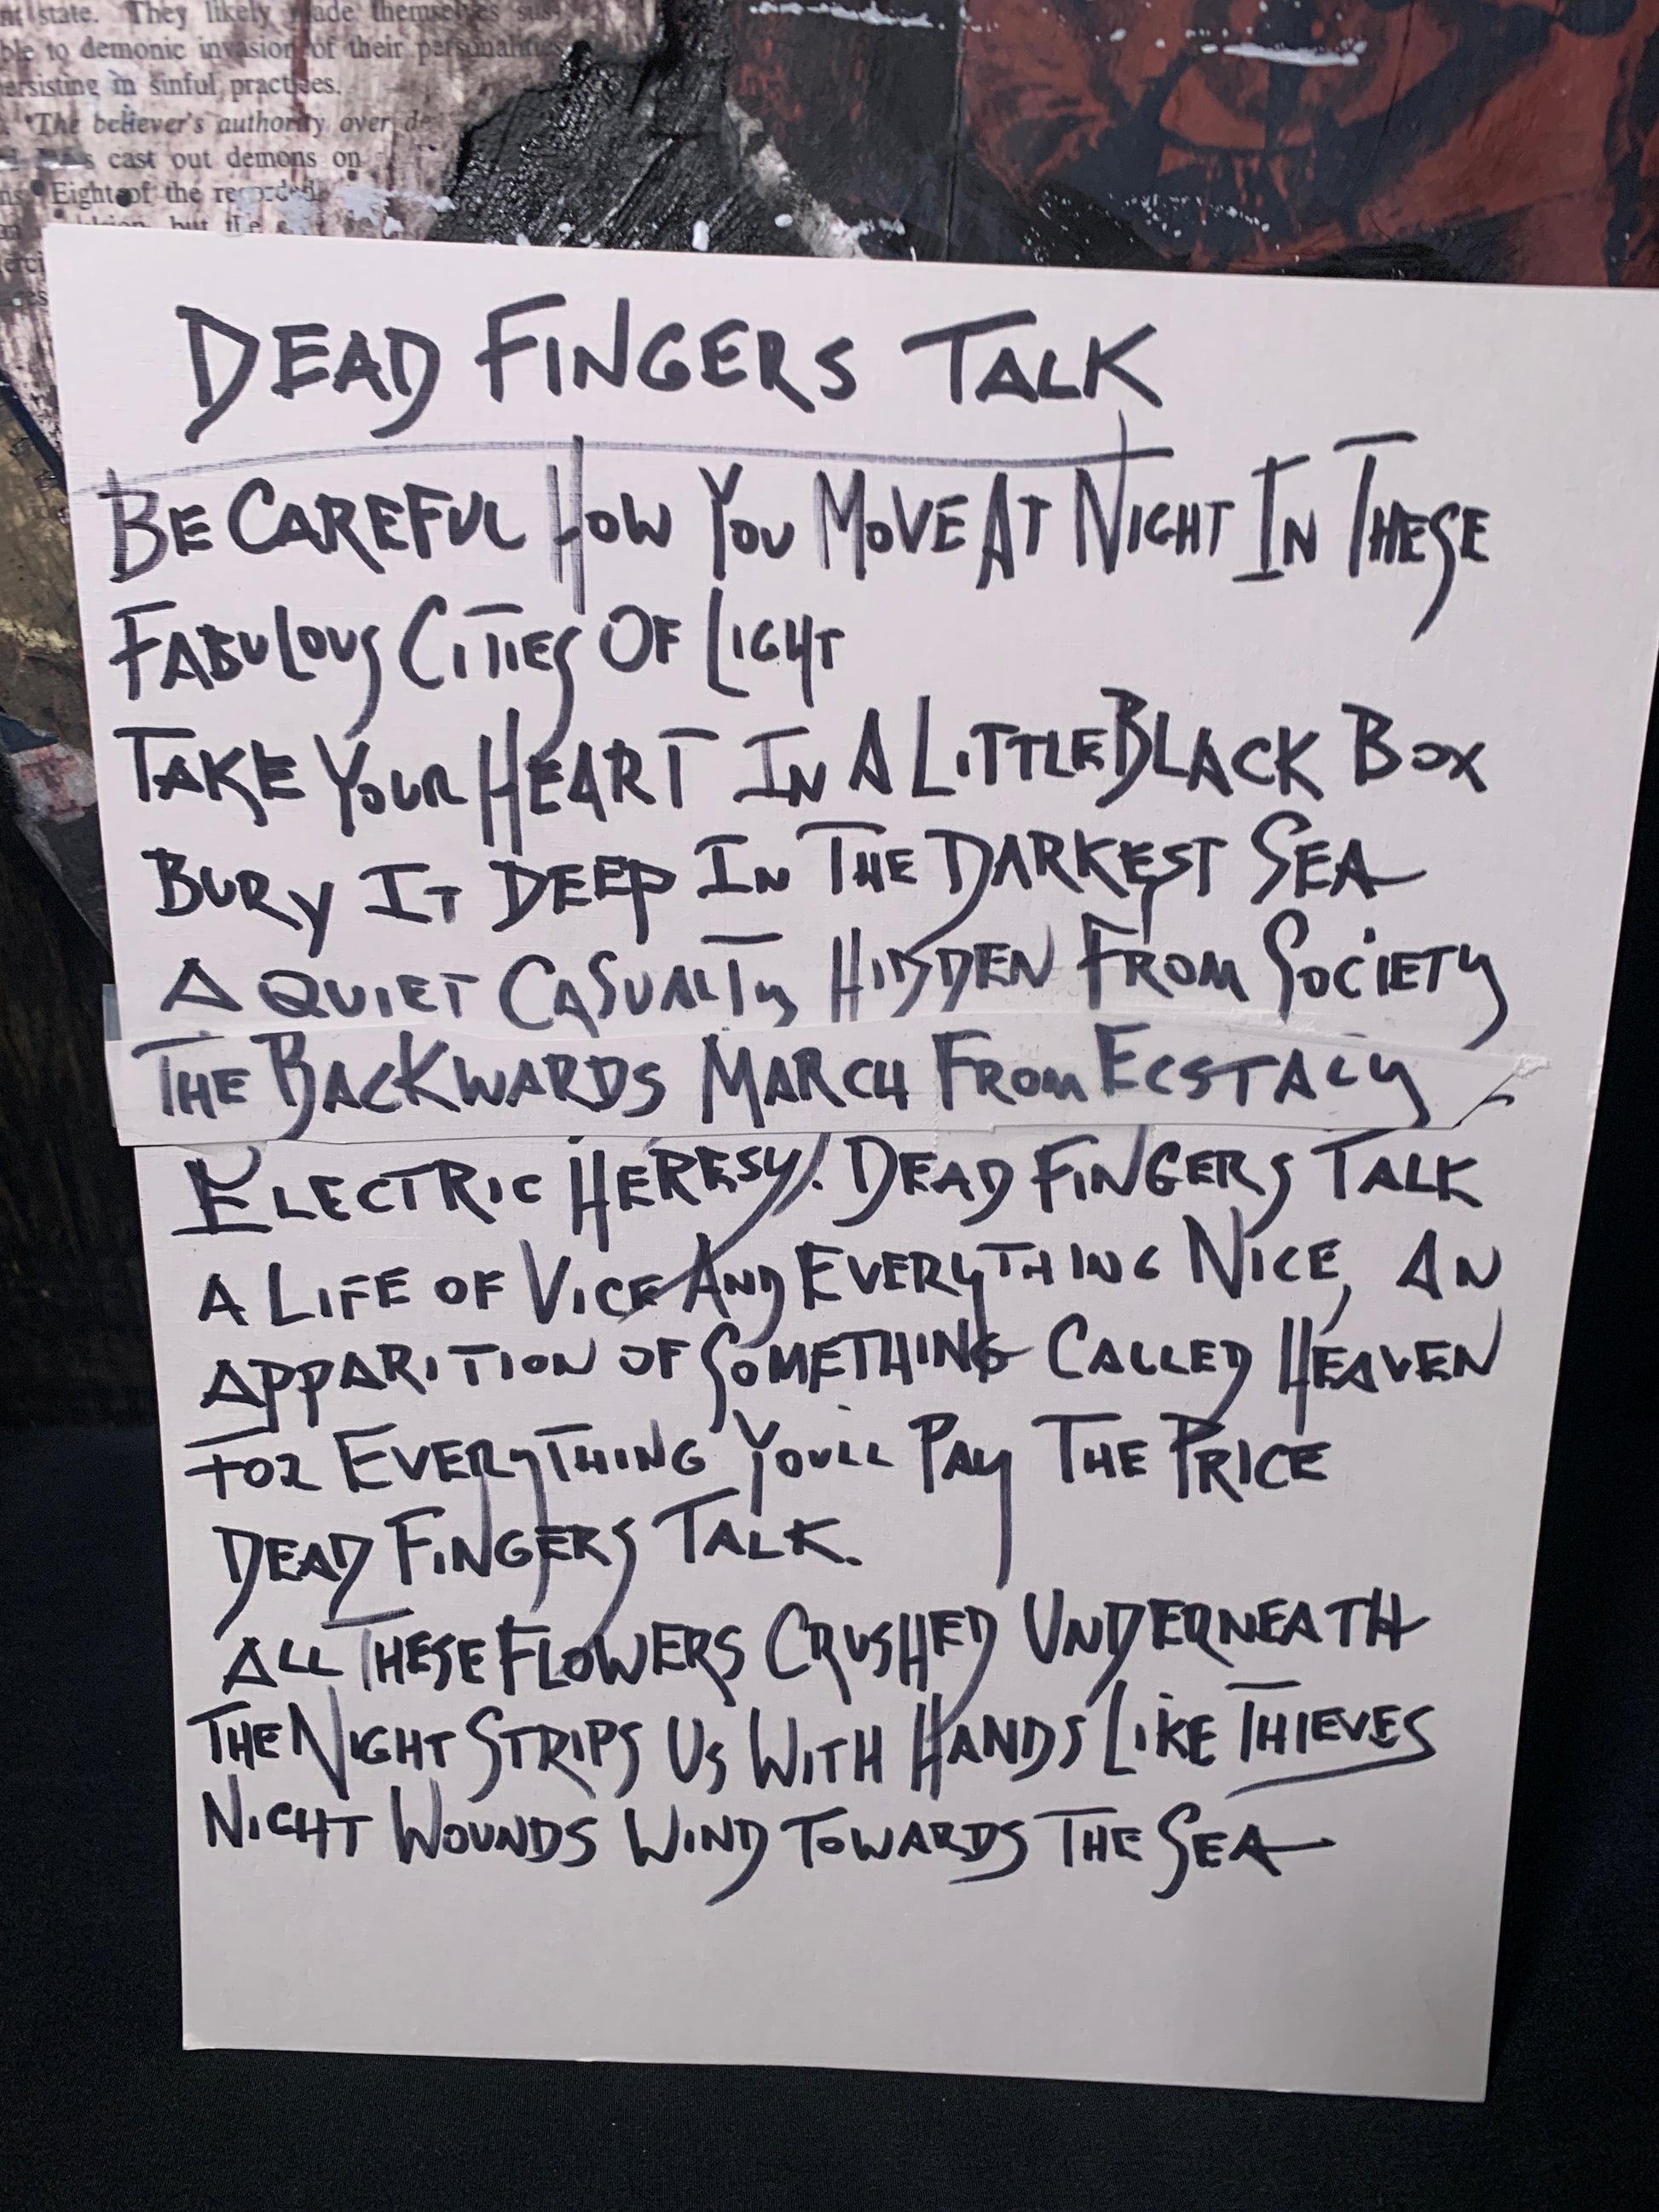 nt state. They likely made themselves sus
ble to demonic invasion of their personalities
ersisting in sinful practices.
"The believer's authority over de
s cast out demons on
ns. Eight of the recorded
but the
DEAD FINGERS TALK
BE CAREFUL HOW YOU MOVE AT NIGHT IN THESE
FABULOUS CITIES OF LIGHT
TAKE YOUR HEART IN A LITTLE BLACK BOX
BURY IT DEEP IN THE DARKEST SEA
A QUIET CASUALTY HIDDEN FROM SOCIETY
THE BACKWARDS MARCH FROM ECSTACY
ELECTRIC HERESY. DEAD FINGERS TALK
A LIFE OF VICE AND EVERYTHING NICE, AN
APPARITION OF SOMETHING CALLED HEAVEN
FOR EVERYTHING YOULL PAY THE PRICE
DEAD FINGERS TALK.
ALL THESE FLOWERS CRUSHED UNDERNEATH
THE NIGHT STRIPS US WITH HANDS LIKE THIEVES
NIGHT WOUNDS WIND TOWARDS THE SEA